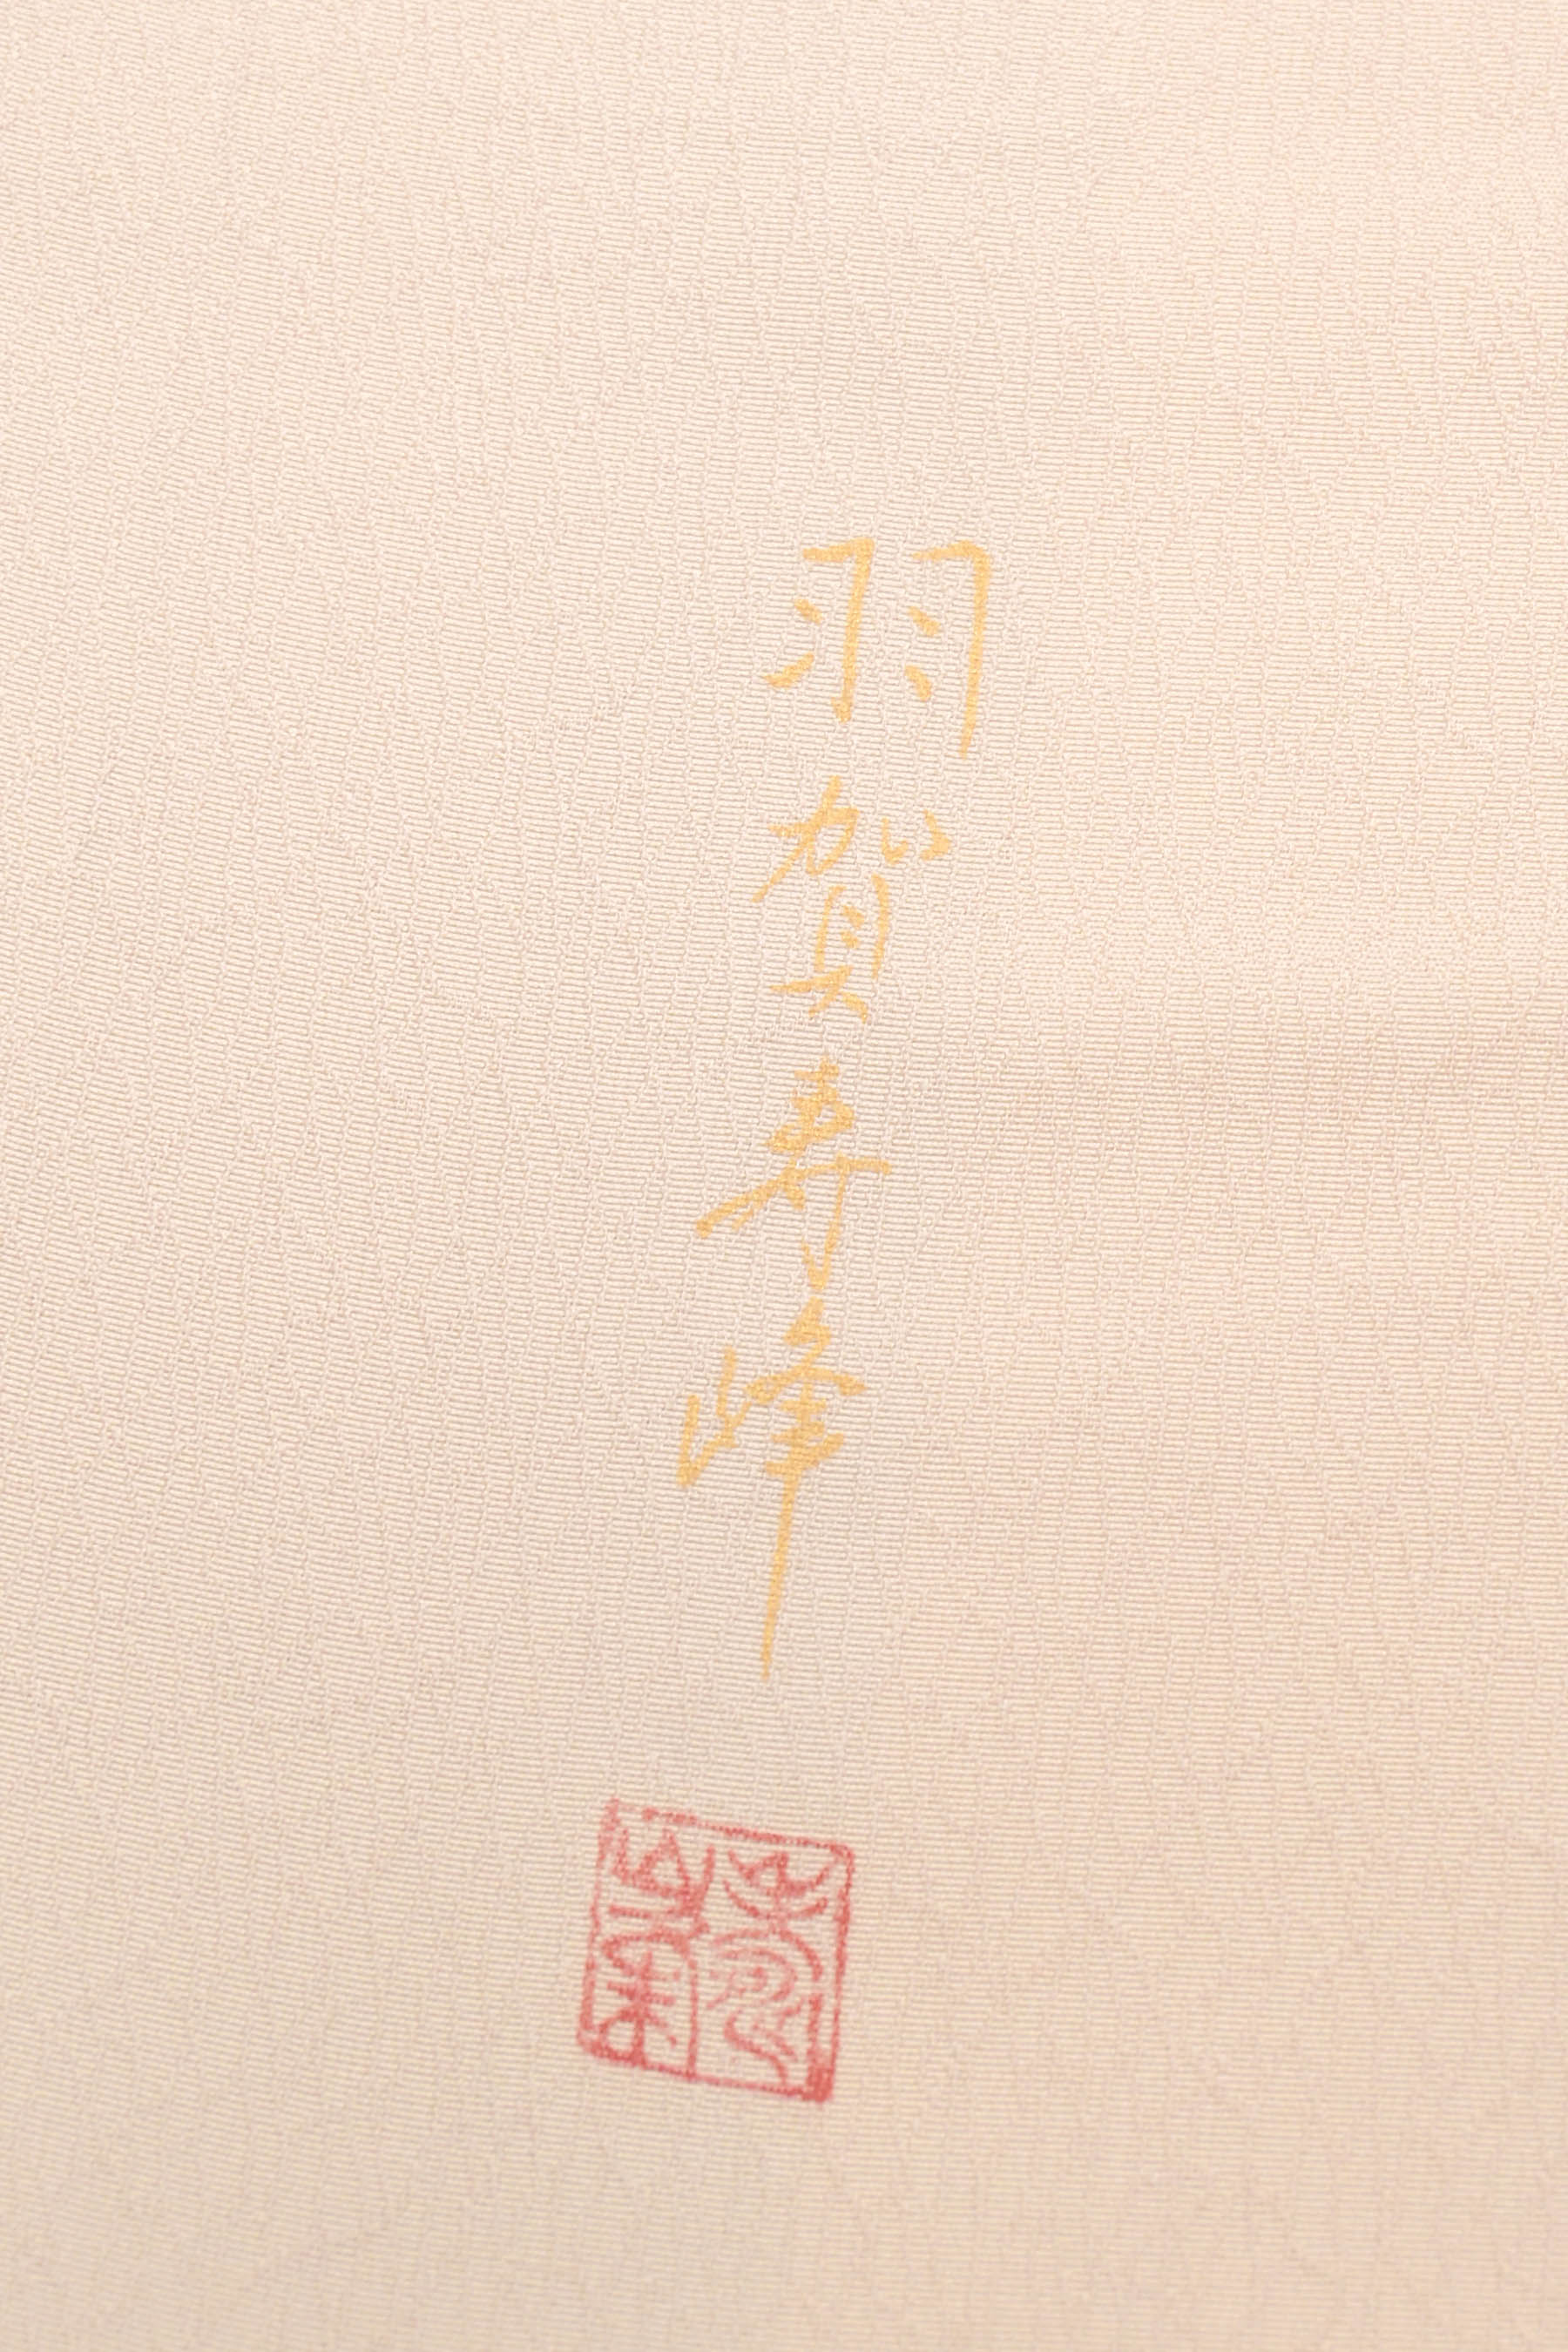 羽賀寿峰